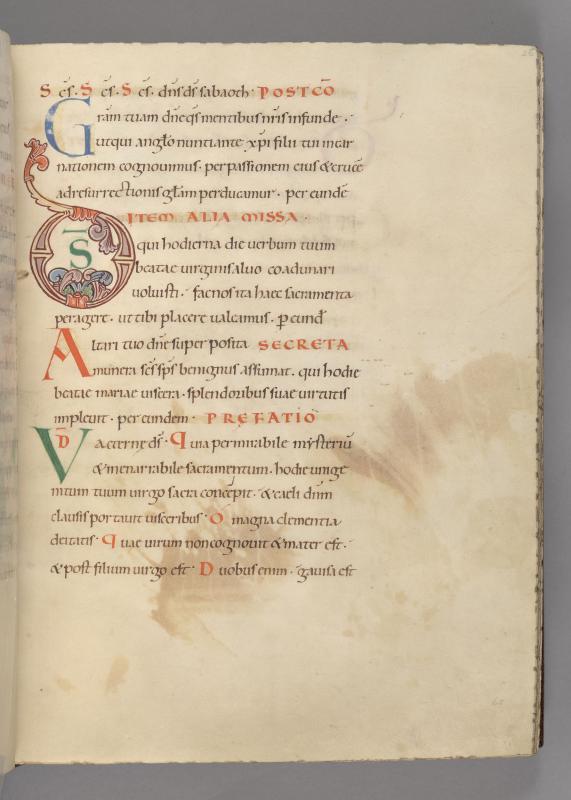 S cs̄. S cs̄. S cs̄. dn̄s ds̄ sabaoth. POSTCŌ
Gram̄ tuam dn̄e qs̄ mentibus nr̄is infunde.
ut qui anglo nuntiante xp̄i filii tui incar
nationem cognovimus. per passionem eius & crucē
ad resurrectionis glām perducamur. per eundē
ITEM ALIA MISSA.
DS̄ qui hodierna die verbum tuum
beatae virginis alvo coadunari
voluisti. fac nos ita haec sacramenta
peragere. ut tibi placere valeamus. p̄ eund̄
Altari tuo dn̄e super posita SECRETA
munera sc̄s sp̄s benignus assumat. qui hodie
beatae mariae viscera. splendoribus suae virtutis
implevit. per eundem. PREFATIO
VD aeterne ds̄. Quia per mirabile mysteriū
& inenarrabile sacramentum. hodie unige
nitum tuum virgo sacra concepit. & caeli dn̄m
clausis portavit visceribus. O magna clementia
deitatis. Quae virum non cognovit & mater est.
& post filium virgo est. Duobus enim. gavisa est